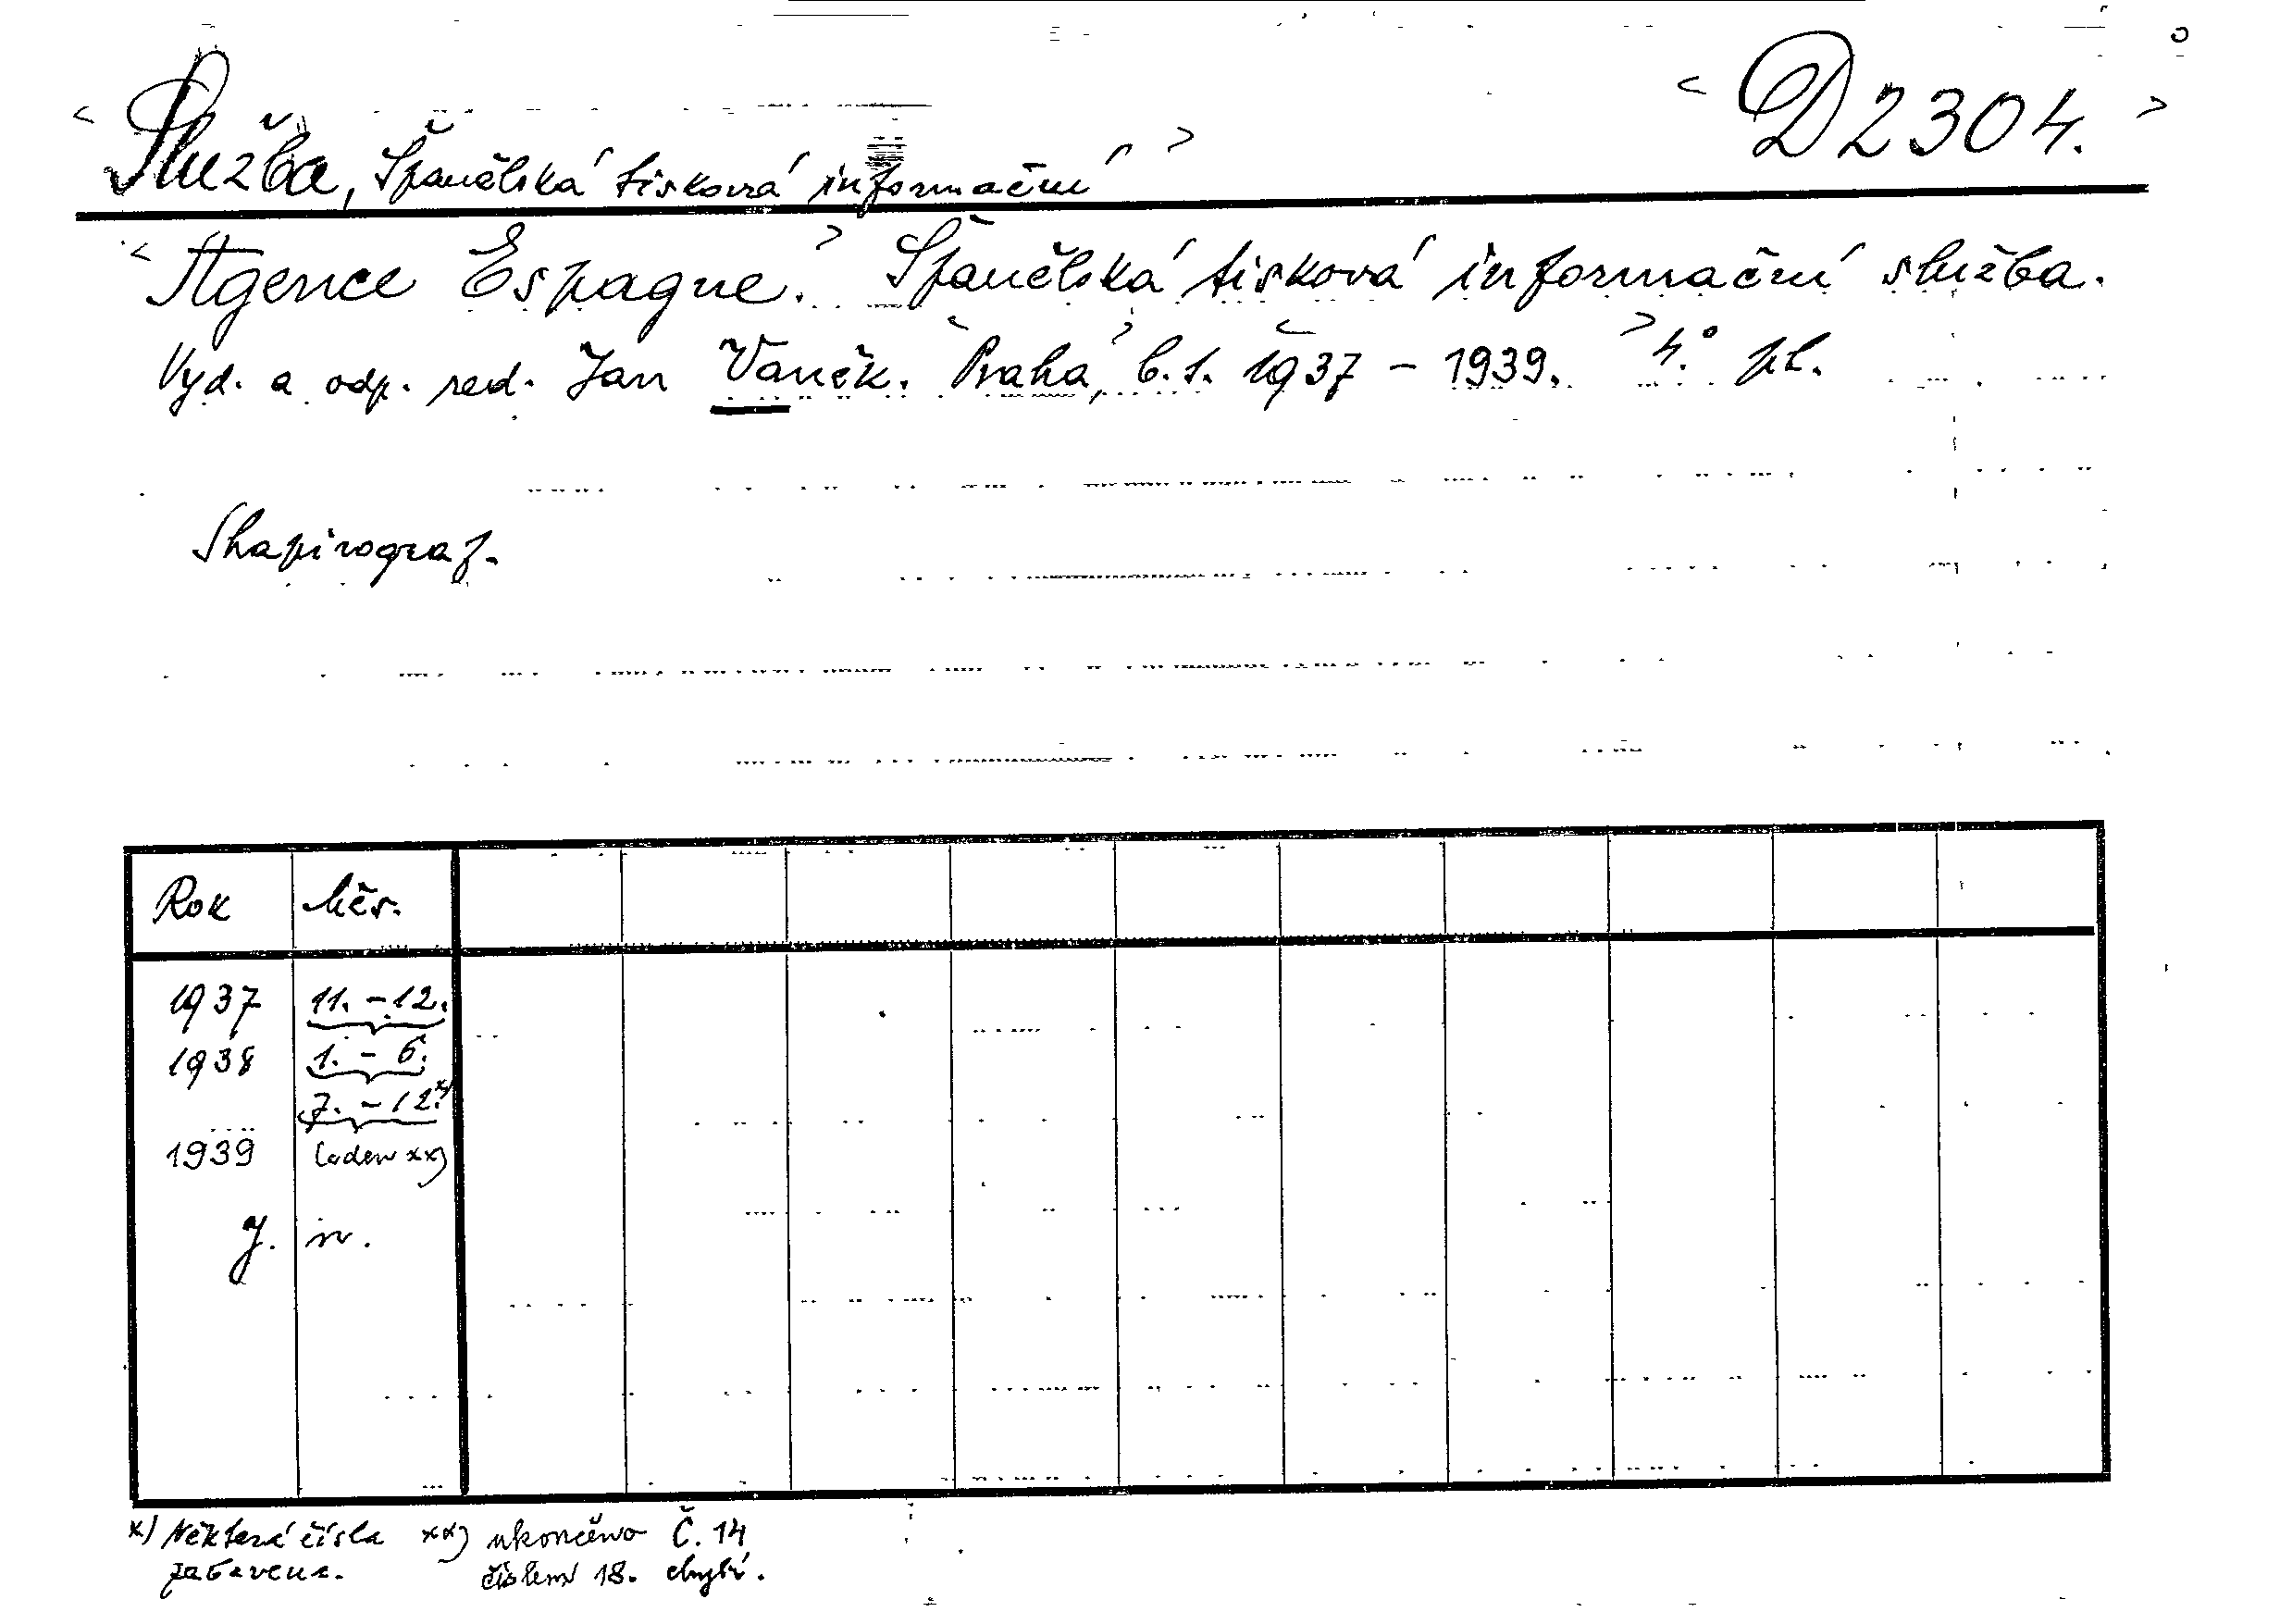 < Služba, Španělská tisková informační >
< D 2304. >
< Agence Espagne. > Španělská tisková informační služba.
Vyd. a odp. red. Jan Vaněk. < Praha, > b.t. < 1937 - 1939. > 4.° pl.
Shapirograf.
Rok Měs.
1937 11. - 12.
1938 1. - 6.
7. - 12. x)
1939 leden xx)
J. n.
x) Některá čísla zabavena.
xx) ukončeno číslem 18.
Č. 14 chybí.